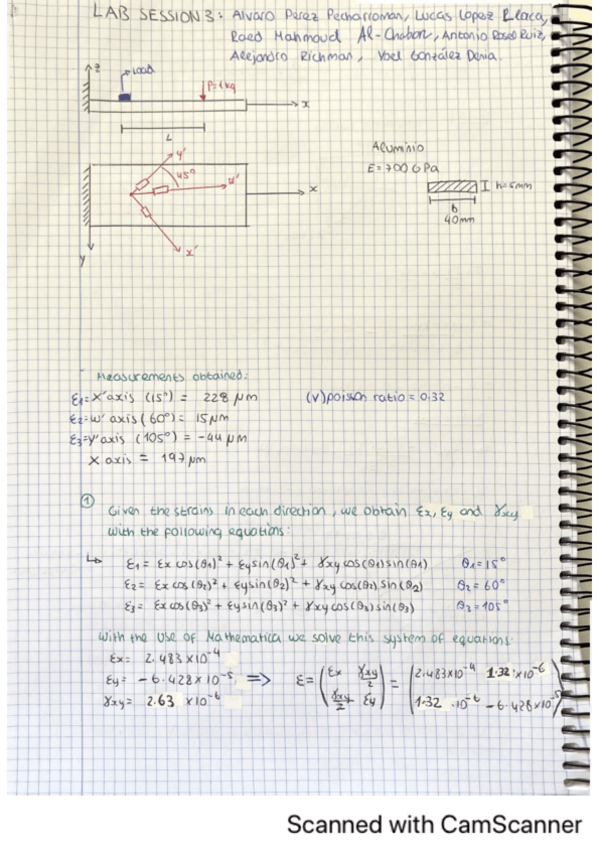 LAB SESSION 3: Alvaro Perez Pecharroman, Lucas Lopez
Raed Mahmoud Al-Chabon, Antonio Rosed Ruiz,
Alejandro Richman, Yoel González Denia.
z
LOAD
P=1kg
x
L
y'
45°
w'
x
x'
y
Aluminio
E=700GPa
h=5mm
b
40mm
Measurements obtained:
ε1=x'axis (15°) = 228 μm
(ν) poisson ratio = 0.32
ε2=w' axis (60°)= 15μm
ε3=y'axis (105°) = -44 μm
X axis = 197μm
1
Given the strains in each direction, we obtain εx, εy and γxy
with the following equations:
↳ ε1 = εx cos(θ1)² + εy sin(θ1)² + γxy cos(θ1) sin(θ1) θ1=15°
ε2 = εx cos(θ2)² + εy sin(θ2)² + γxy cos(θ2) sin(θ2) θ2=60°
ε3 = εx cos(θ3)² + εy sin(θ3)² + γxy cos(θ3) sin(θ3) θ3=105°
With the use of Mathematica we solve this system of equations:
εx= 2.483x10⁻⁴
εy= -6.428x10⁻⁵ => ε= (εx γxy/2 γxy/2 εy) = (2.483x10⁻⁴ 1.32·x10⁻⁶ 1.32 ·10⁻⁶ -6.428x10⁻⁵)
γxy= 2.63 x10⁻⁶
Scanned with CamScanner